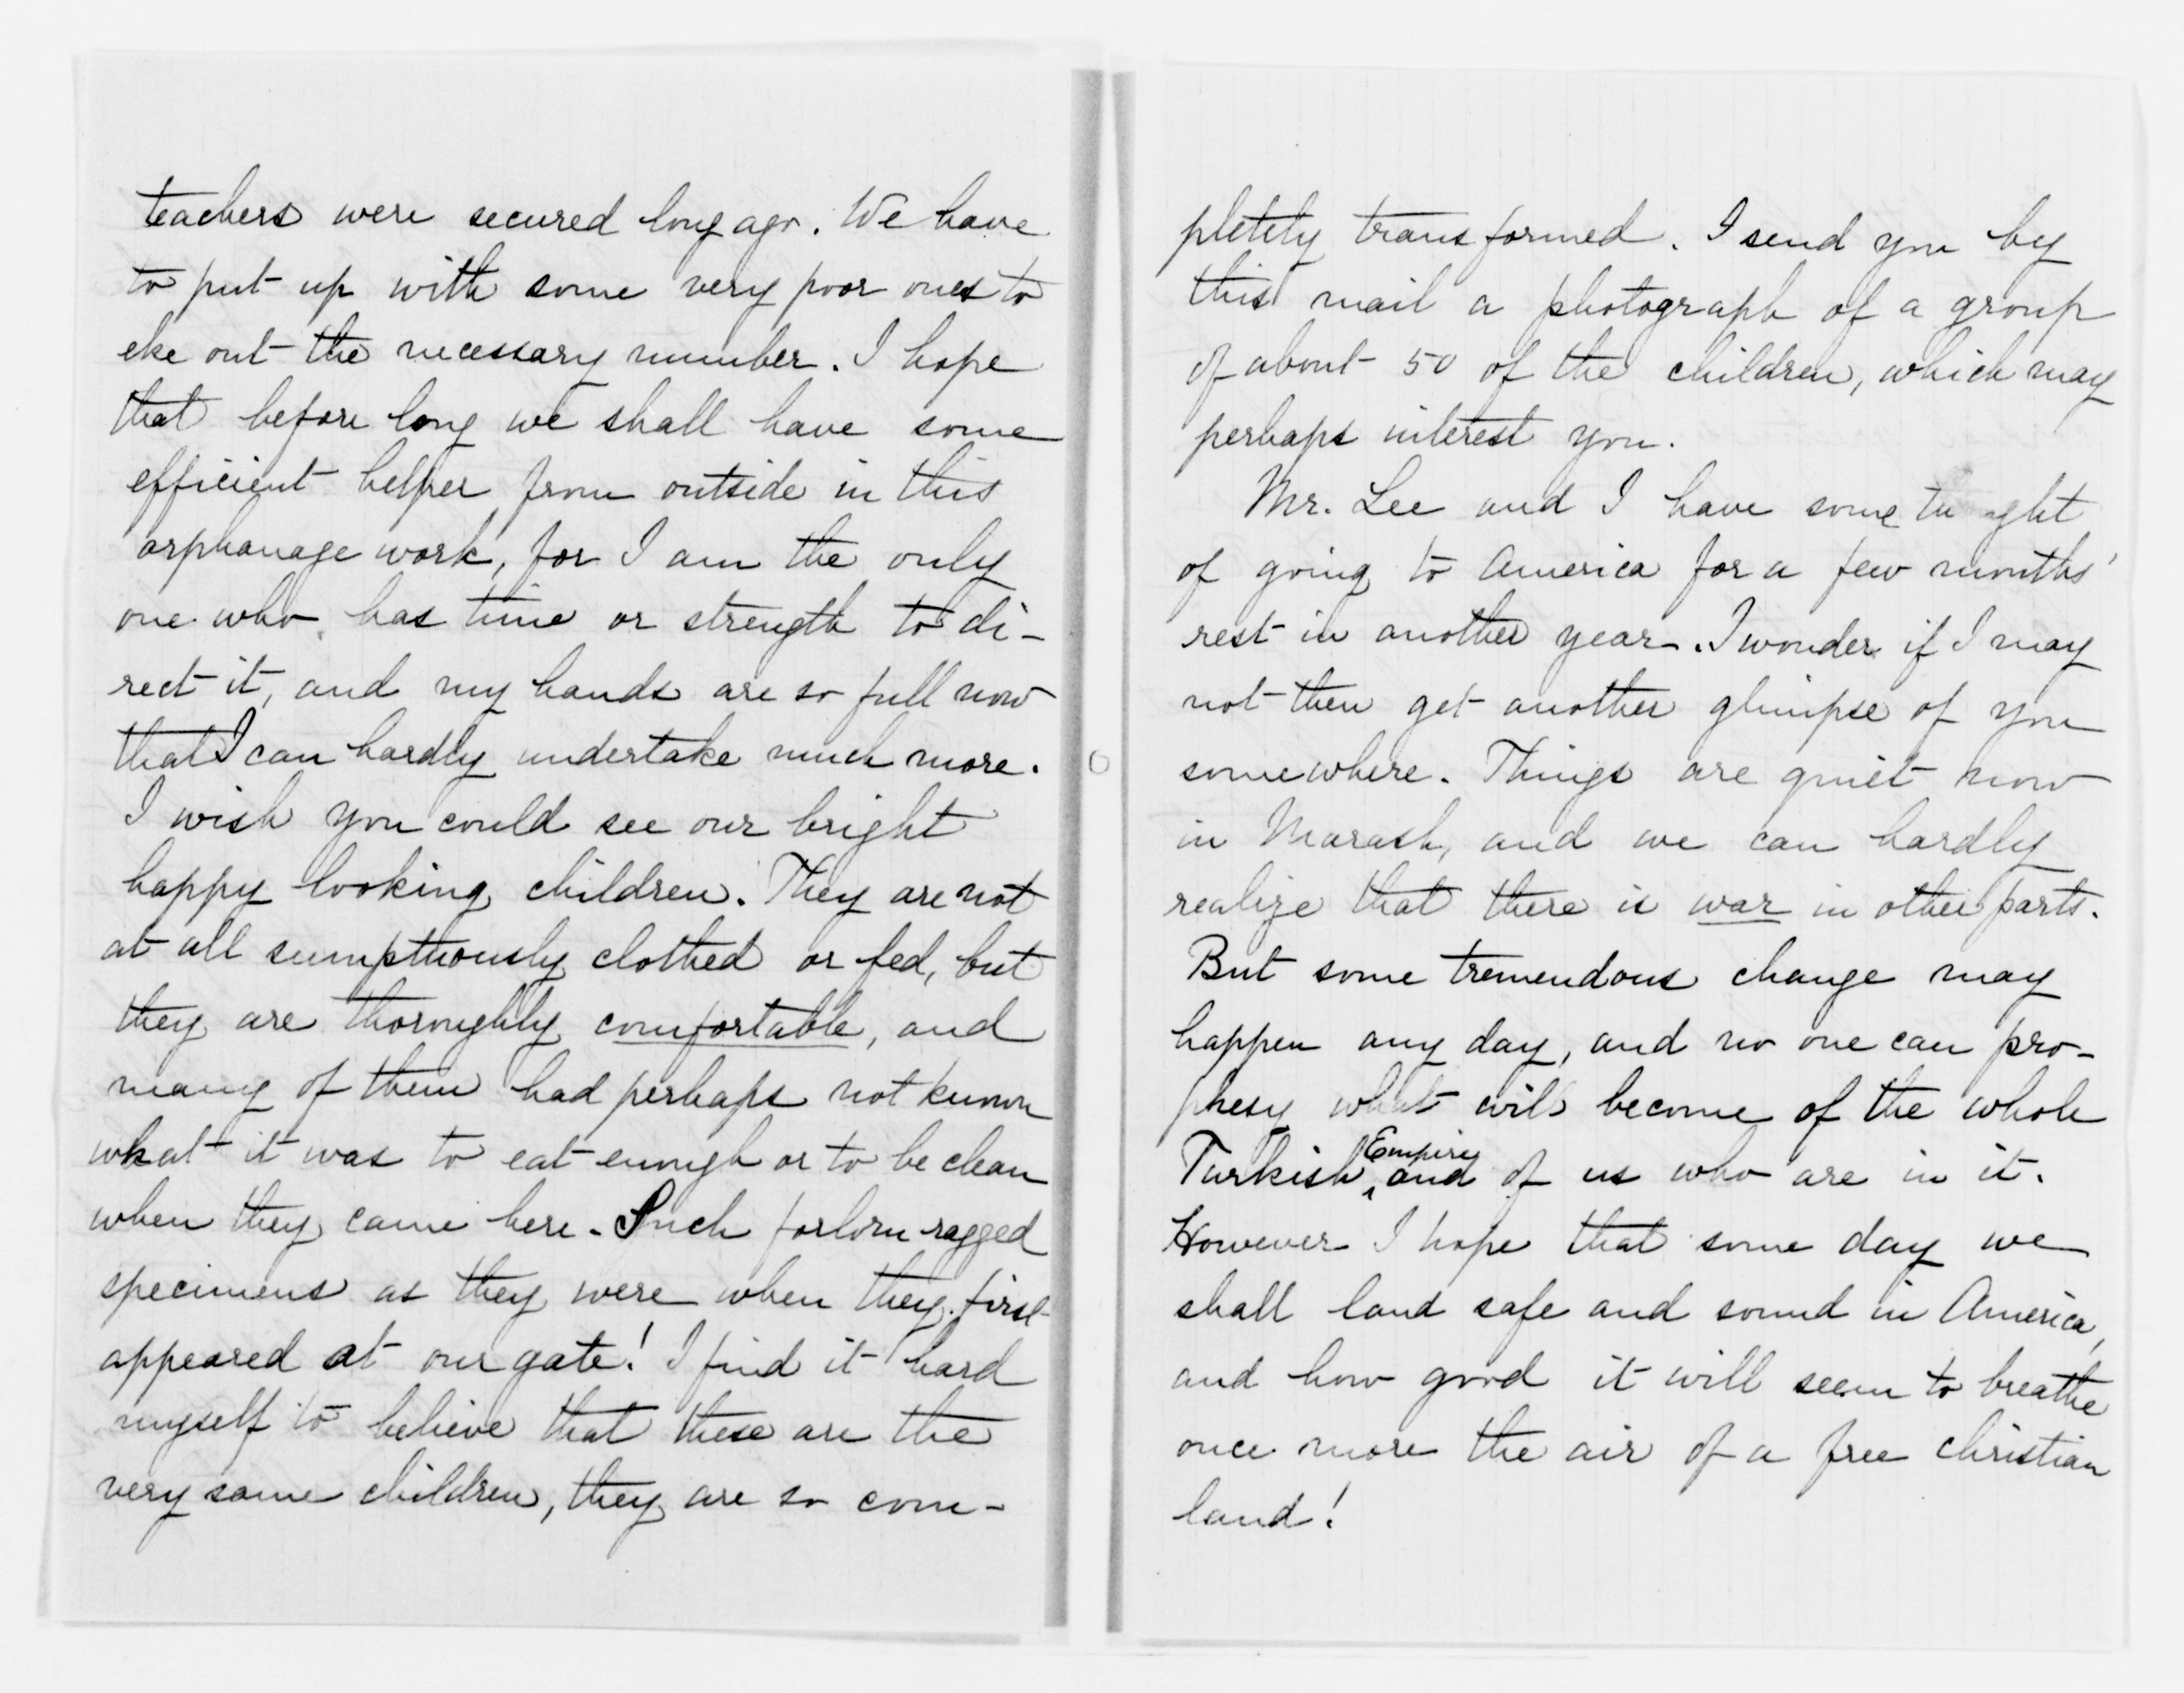 teachers were secured long ago. We have
to put up with some very poor ones to
eke out the necessary number. I hope
that before long we shall have some
efficient helper from outside in this
orphanage work, for I am the only
one who has time or strength to di-
rect it, and my hands are so full now
that I can hardly undertake much more.
I wish you could see our bright
happy looking children. They are not
at all sumptuously clothed or fed, but
they are thoroughly comfortable, and
many of them had perhaps not known
what it was to eat enough or to be clean
when they came here. Such forlorn ragged
specimens as they were when they first
appeared at our gate! I find it hard
myself to believe that these are the
very same children, they are so com-
pletely transformed. I send you by
this mail a photograph of a group
of about 50 of the children, which may
perhaps interest you.
Mr. Lee and I have some
of going to America for a few months'
rest in another year. I wonder if I may
not then get another glimpse of you
somewhere. Things are quiet now
in Marash, and we can hardly
realize that there is war in other parts.
But some tremendous change may
happen any day, and no one can pro-
phesy what will become of the whole
Turkish Empire and of us who are in it.
However I hope that some day we
shall land safe and sound in America,
and how good it will seem to breathe
once more the air of a free christian
land!